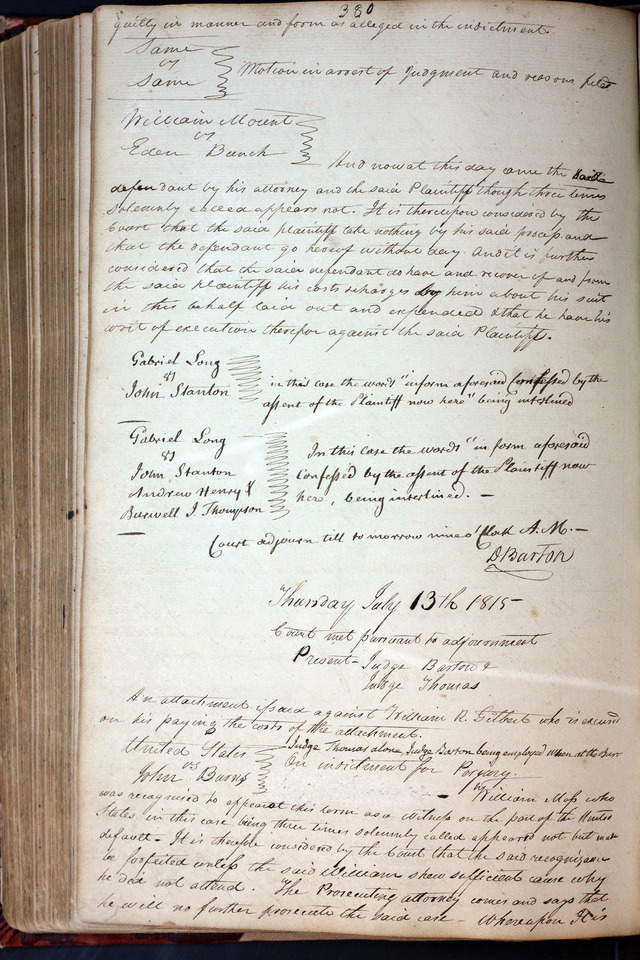 380
guilty in manner and form as alleged in the indictment.
Same
vs
Same
Motion in arrest of Judgment and reasons filed
William Mount
vs
Eden Bunch
And now at this day came the
defendant by his attorney and the said Plaintiff though three times
Solemnly exceed appears not. It is thereupon considered by the
Court that the said plaintiff take nothing by his said process and
that the defendant go hereof without day. And it is further
considered that the said defendant do have and recover of and from
the said plaintiff his costs & charges by him about his suit
in this behalf laid out and expended & that he have his
writ of execution therefor against the said Plaintiff.
Gabriel Long
vs
John Stanton
in this case the words "in form aforesaid Confessed by the
assent of the Plaintiff now here" being interlined
Gabriel Long
vs
John Stanton
Andrew Henry &
Burwell J. Thompson
In this case the words "in form aforesaid
confessed by the assent of the Plaintiff now
here, being interlined. —
Court adjourn till tomorrow nine o'Clock A.M. —
D Barton
Thursday July 13th 1815
Court met pursuant to adjournment
Present - Judge Barton &
Judge Thomas
An attachment issued against William R. Gilbert who is excused
on his paying the costs of the attachment.
United States
vs
John Burns
Judge Thomas alone, Judge Barton being employed when at the Barr
In indictment for Perjury.
William Moss who
was recognised to appear at this term as a witness on the part of the United
States in this case being three times solemnly called appeared not but made
default - It is therefore considered by the Court that the said recognizance
be forfeited unless the said William shew sufficient cause why
he did not attend. The Prosecuting attorney comes and says that
he will no further prosecute the said case - Whereupon It is